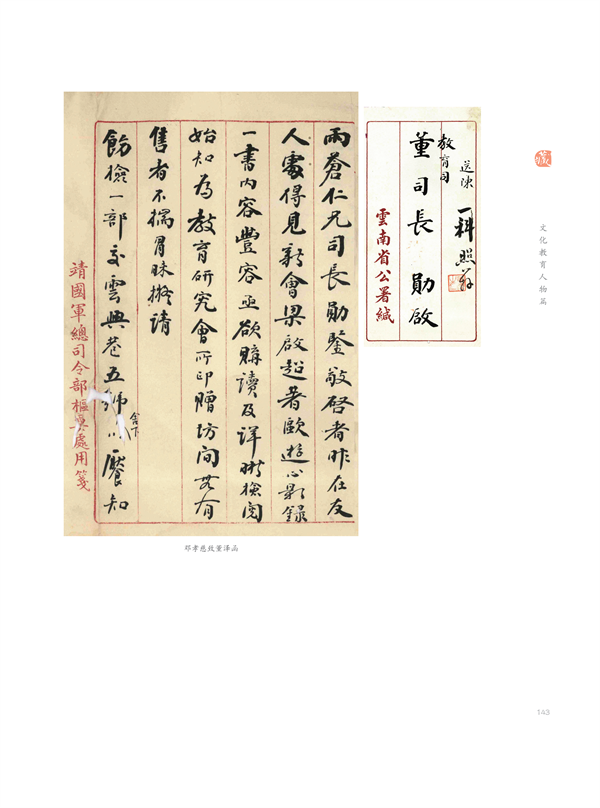 雨蒼仁兄司長勛鑒敬啓者昨在友
人處得見新會梁啟超著歐遊心影錄
一書內容豐容亟欲購讀及詳晰檢閱
始知為教育研究會所印贈坊間無有
售者不揣冒昧擬請
飭檢一部交雲興巷五號舍下以饜知
靖國軍總司令部樞要處用箋
送陳
一科照辦
教育司
董司長 勛啟
雲南省公署緘
文化教育人物篇
鄧孝慈致董澤函
143